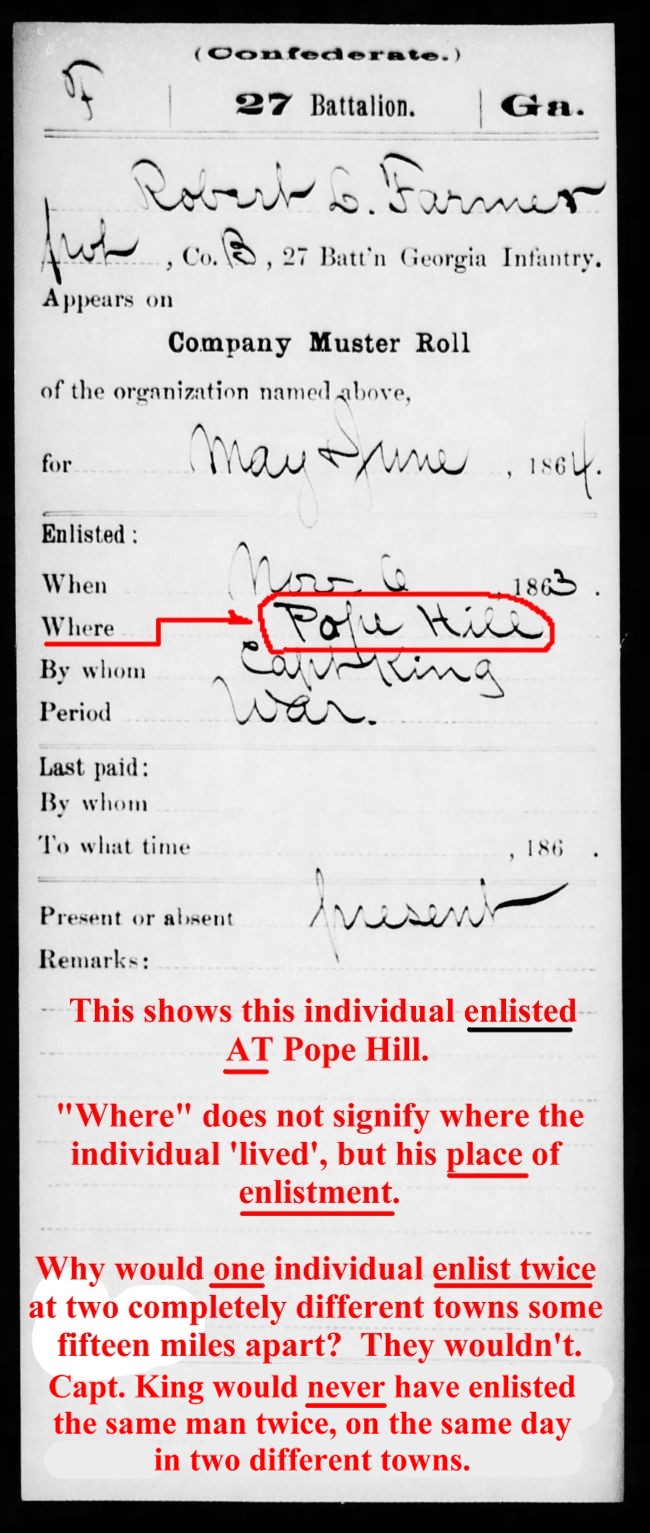 (Confederate.)
F | 27 Battalion. | Ga.
Robert L. Farmer
Pvt, Co. B, 27 Batt'n Georgia Infantry.
Appears on
Company Muster Roll
of the organization named above,
for May & June, 1864.
Enlisted:
When Nov 6, 1863.
Where Pope Hill
By whom Capt King
Period War.
Last paid:
By whom
To what time , 186 .
Present or absent present
Remarks:
This shows this individual enlisted
AT Pope Hill.
"Where" does not signify where the
individual 'lived', but his place of
enlistment.
Why would one individual enlist twice
at two completely different towns some
fifteen miles apart? They wouldn't.
Capt. King would never have enlisted
the same man twice, on the same day
in two different towns.